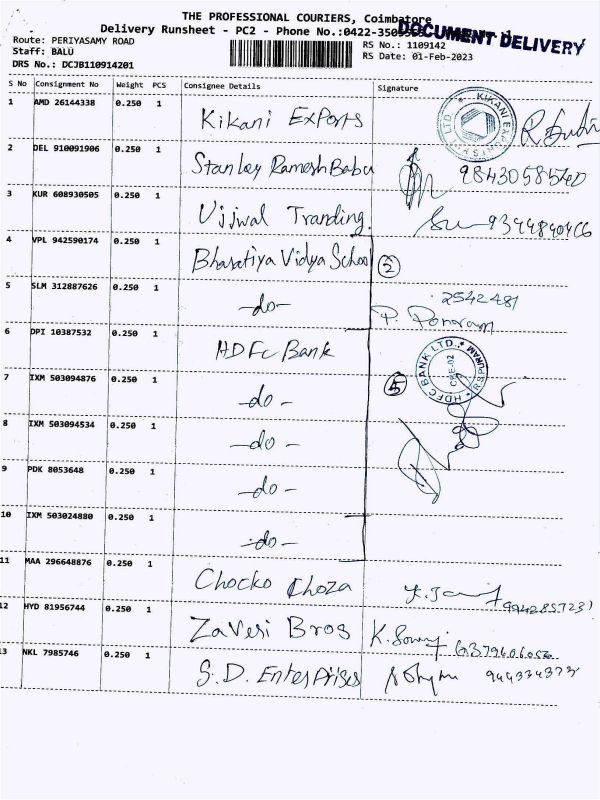 THE PROFESSIONAL COURIERS, Coimbatore
Delivery Runsheet - PC2 - Phone No.:0422-
DOCUMENT DELIVERY
Route: PERIYASAMY ROAD
RS No.: 1109142
Staff: BALU
RS Date: 01-Feb-2023
DRS No.: DCJB110914201
S No Consignment No Weight PCS Consignee Details Signature
1 AMD 26144338 0.250 1 Kikani Exports
2 DEL 910091906 0.250 1 Stanley Ramesh Babu
3 KUR 608930505 0.250 1 Ujjwal Tranding.
4 VPL 942590174 0.250 1 Bharatiya Vidya School 2
5 SLM 312887626 0.250 1 -do- 2542481
6 DPI 10387532 0.250 1 HDFC Bank
HDFC BANK LTD. * RSPURAM *
7 IXM 503094876 0.250 1 -do- 5
8 IXM 503094534 0.250 1 -do-
9 PDK 8053648 0.250 1 -do-
10 IXM 503024880 0.250 1 -do-
11 MAA 296648876 0.250 1 Chocko Choza
12 HYD 81956744 0.250 1 Zaveri Bros
13 NKL 7985746 0.250 1 S.D. Enterprises